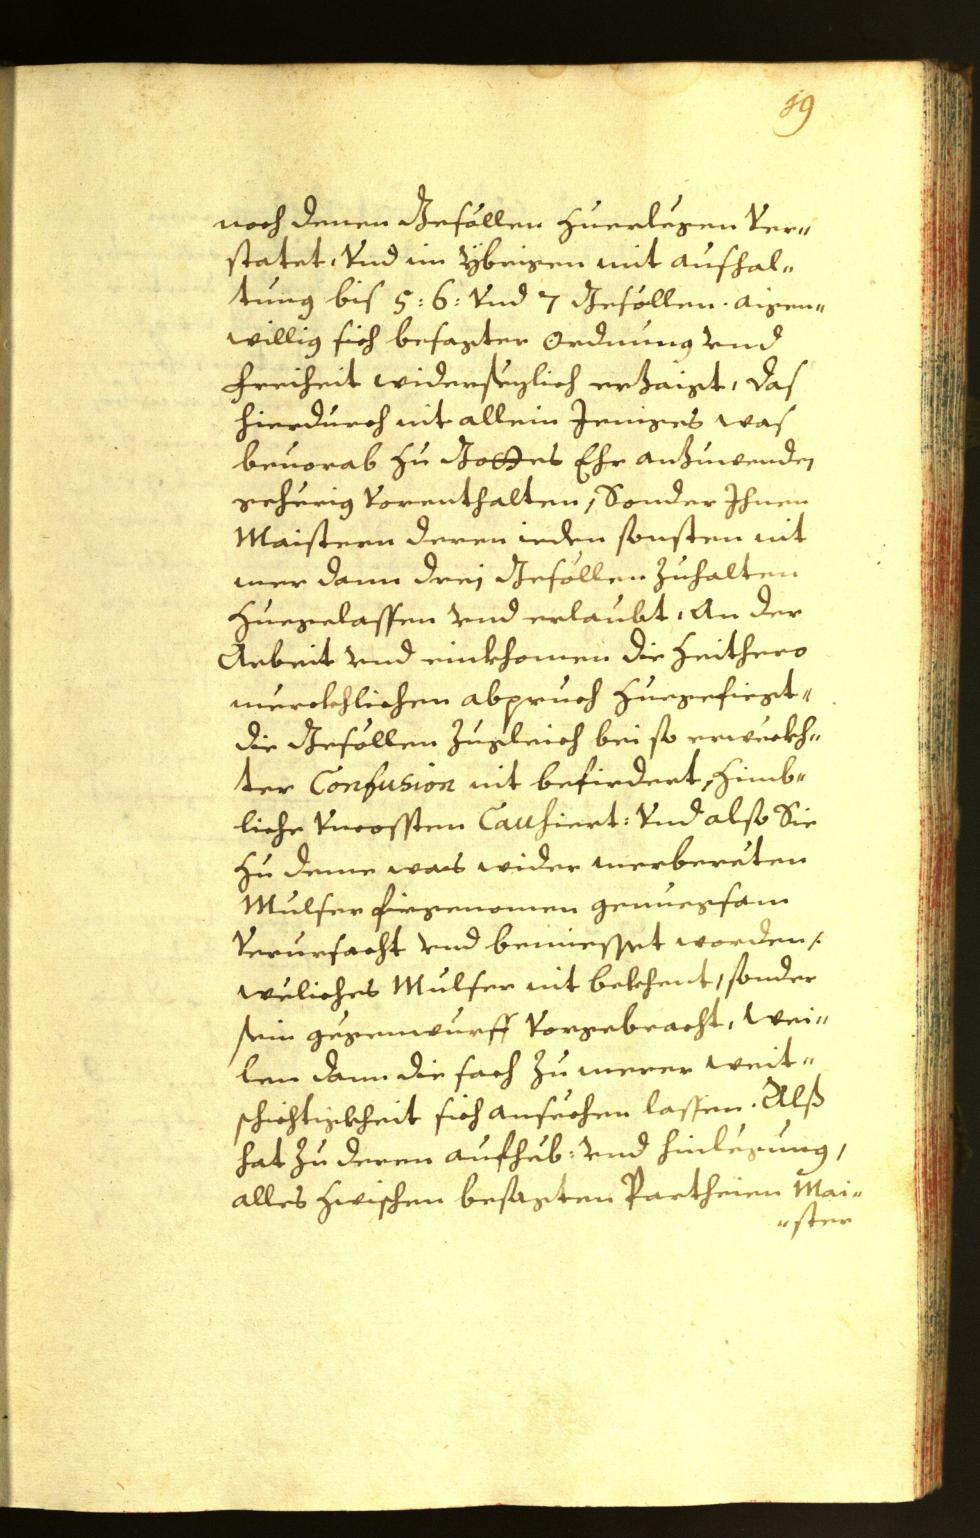 19
noch denen Gesöllen zuerlegen ver¬
statet, Vnd im ybrigen mit aufhal¬
tung bis 5: 6: Vnd 7 Gesöllen. aigen¬
willig sich besagter Ordnung vnd
freiheit widersezlich erzaigt, das
hierdurch nit allein Jeniges was
beuorab zu Gottes Ehr anzuwenden
gehörig Vorenthalten, Sonder Ihnen
Maistern deren ieden sonsten nit
mer dann drei Gesöllen zuhalten
zuegelassen vnd erlaubt, An der
Arbeit vnd einkhomen die Zeithero
merckhlichen abpruch zuegefiegt¬
die Gesöllen zugleich bei so erweckh¬
ter Confusion nit befirdert, Zimb¬
liche Vncossten Causiert: Vnd also Sie
zu deme was wider merberüten
Mulser firgenomen genuegsam
Verursacht vnd bemiessget worden,
weliches Mulser nit bekhent, sonder
sein gegenwurff Vorgebracht, Wei¬
len dann die sach zu merer weit¬
schichtigkheit sich ansechen lassen. Alß
hat zu deren aufhüb: vnd hinlegung,
alles zwischen besagten Partheien Mai¬
¬ster